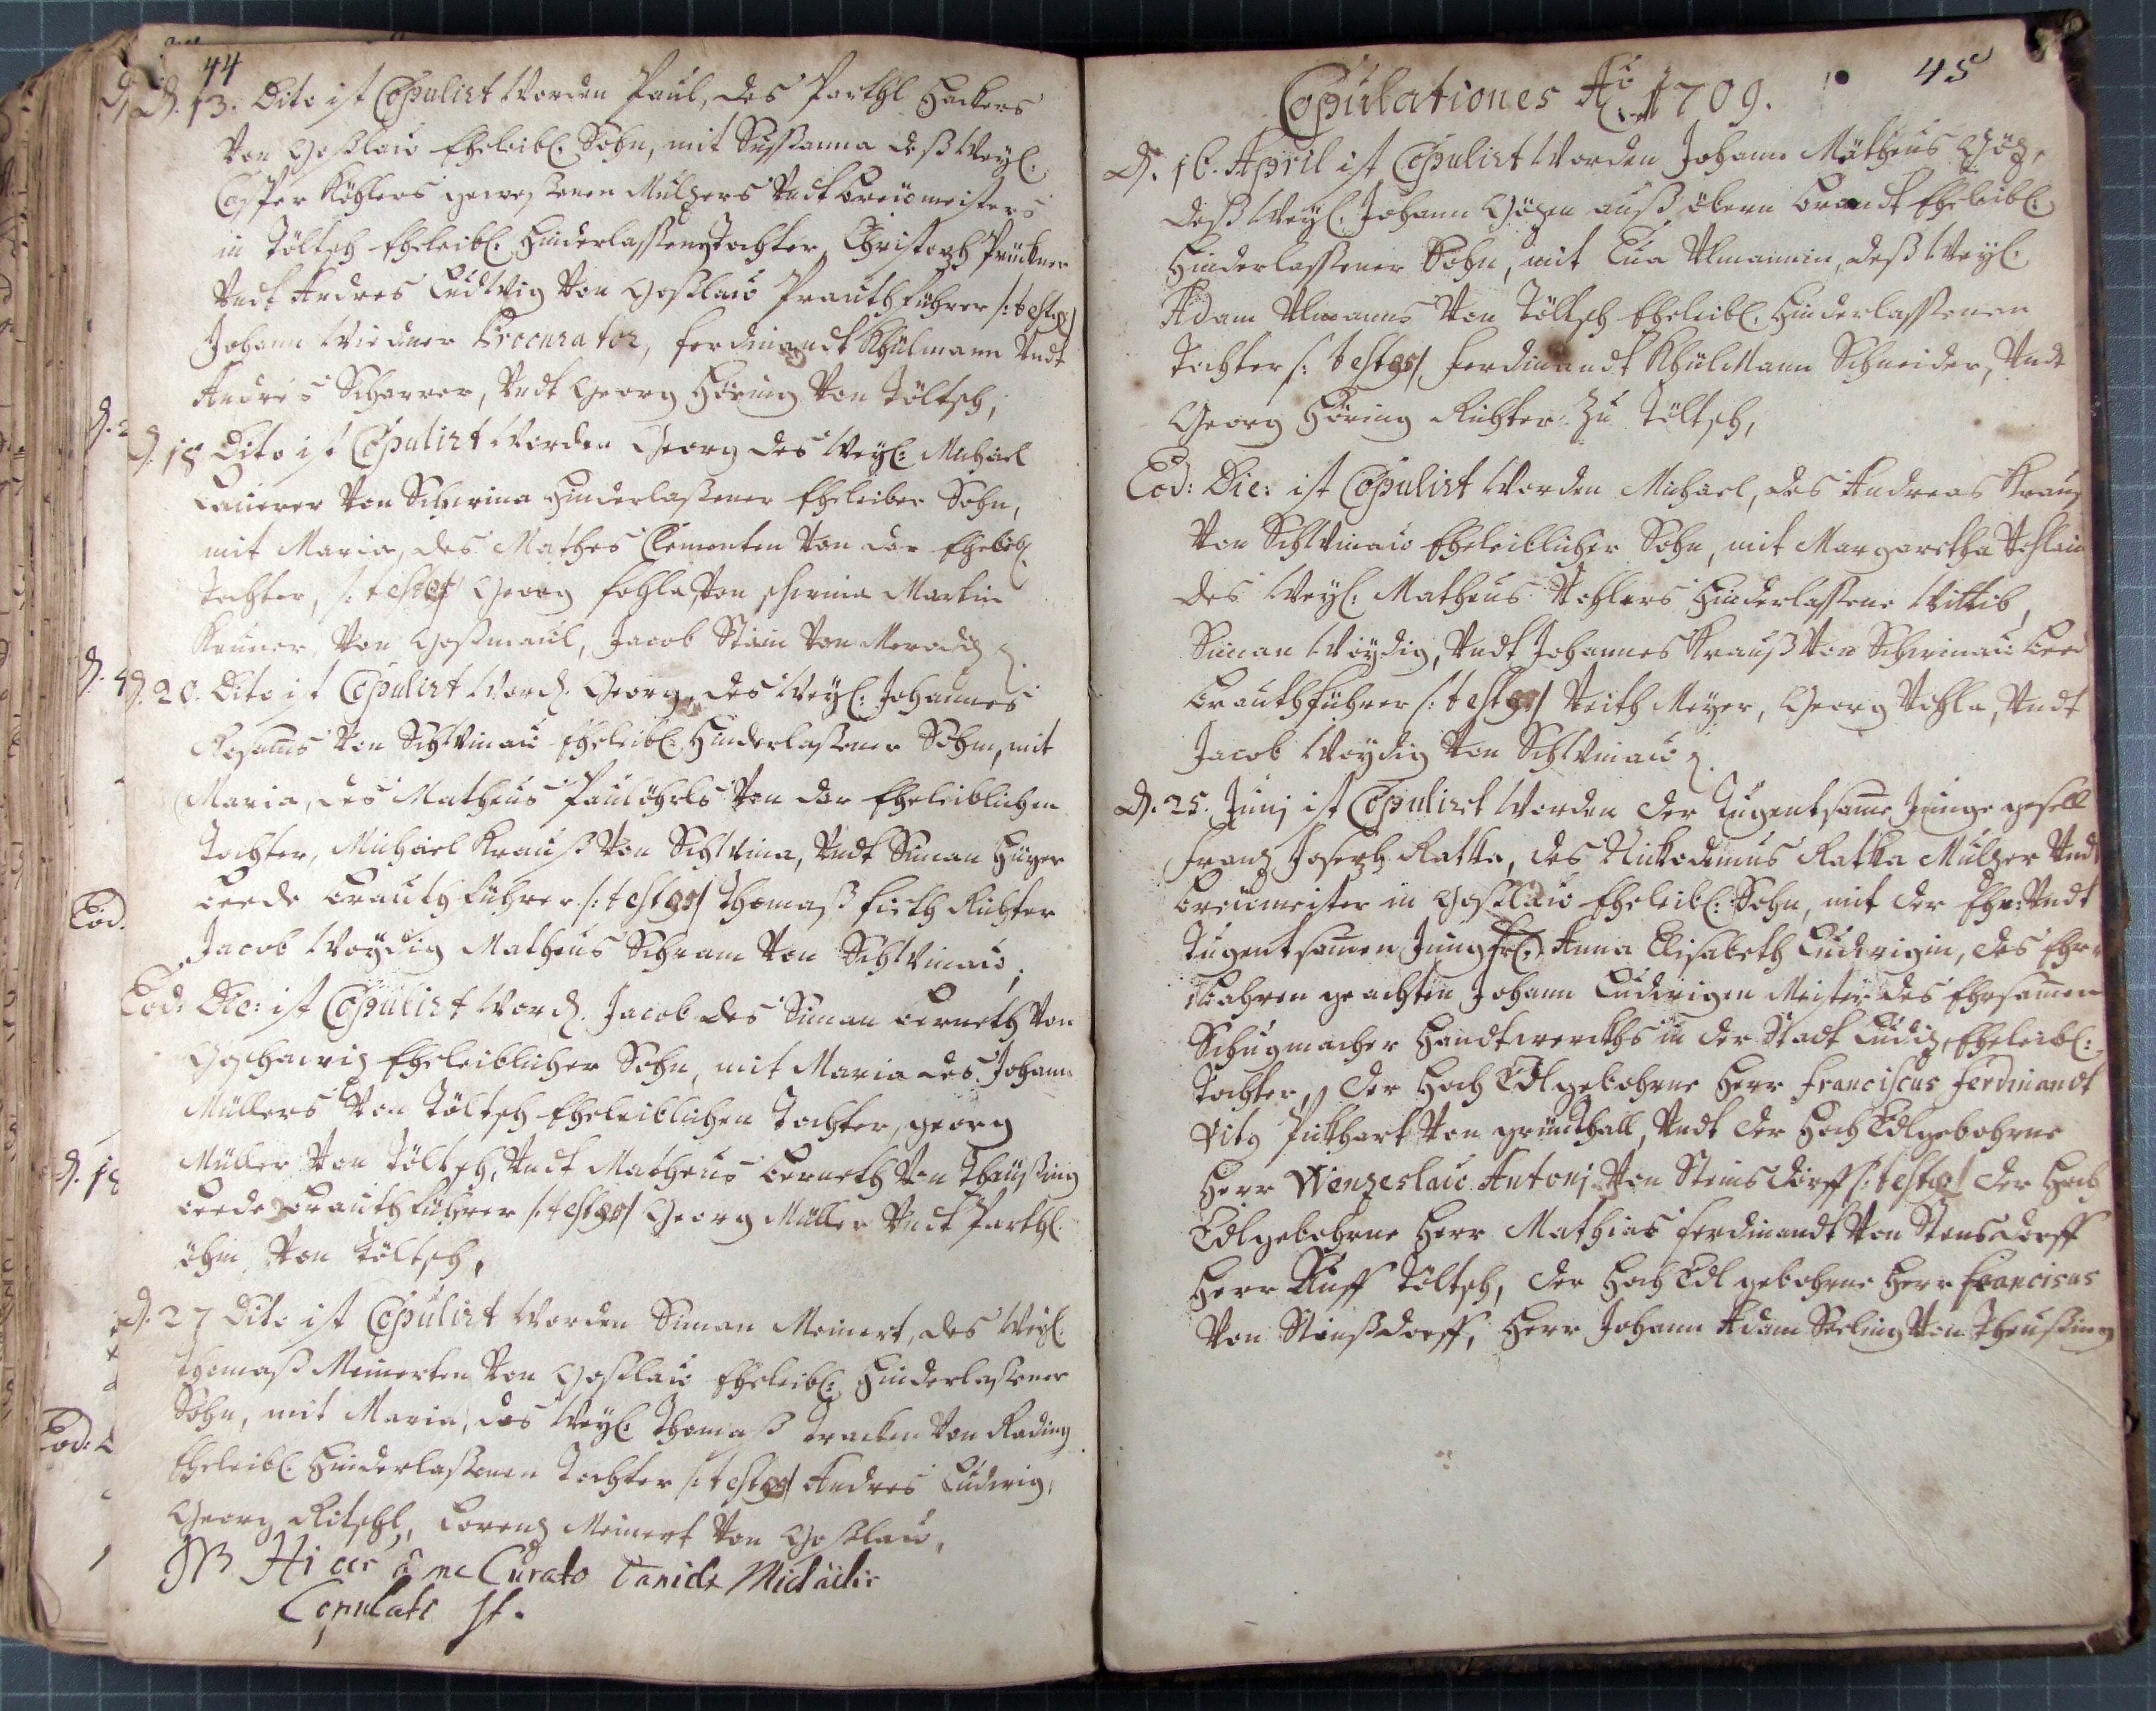 44
D. 13. Dito ist Copulirt Worden Paul, des Parthl Hackers
Von Goßlau Eheleibl. Sohn, mit Sußanna deß Weyl.
Casper Köhlers geweßenen Mulzers Vndt breümeisters
in Töltsch Eheleibl. Hinderlaßene Tochter, Christoph Prückner
Vndt Andres Ludwig Von Goßlau Prauthführer /: testes /
Johann Widmer Procurator, ferdinandt Khülmann Vndt
Andres Scharrer, Vndt Georg Höring Von Töltsch,
D. 18 Dito ist Copulirt Worden Georg des Weyl: Michael
Von Schwina Hinderlaßener Eheleiber Sohn,
mit Maria, des Mathes Clementen Von dar Eheleibl.
Tochter, /: testes / Georg Von schwina Martin
Von Goßmaul, Jacob Stain Von
D. 20. Dito ist Copulirt Word. Georg, des Weyl: Johannes
Von Schwinau Eheleibl. Hinderlaßener Sohn, mit
Maria, des Matheus Paulöhrls Von dar Eheleiblichen
Tochter, Michael Krauß Von Schwina, Vndt Simon Hüyer
beede brauthführer /: testes / Thomaß fieth Richter
Jacob Woydig Matheus Schram Von Schwinau,
Eod: Die: ist Copulirt Word. Jacob des Siman Berneth Von
Eheleiblicher Sohn, mit Maria des Johann
Müllers Von Töltsch Eheleiblichen Tochter, georg
Müller Von Töltsch, Vndt Matheus Berneth Von Theüßing
beede brauthführer /: testes / Georg Müller Vndt Parthl.
öhm Von Töltsch,
D. 27 Dito ist Copulirt Worden Siman Meinert, des Weyl.
Thomaß Meinerten Von Goßlau Eheleibl: Hinderlaßener
Sohn, mit Maria, des Weyl. Thomaß Von Rading
Eheleibl. Hinderlaßenen Tochter /: testes / Andres Ludwig,
Georg Ritschl, Lorenz Meinert Von Goßlau,
NB Hi à me Curato Daniele
Copulati st.
45
Copulationes Ao 1709.
D. 16. April ist Copulirt Worden Johann Mätheus Göz,
deß Weyl. Johann Gözen auß öbern brandt Eheleibl.
Hinderlaßener Sohn, mit Eua Ulmannin, deß Weyl.
Adam Ulmanns Von Töltsch Eheleibl. Hinderlaßenen
Tochter /: testes / ferdinandt Khülmann Schneider, Vndt
Georg Höring Richter Zu Töltsch,
Eod: Die: ist Copulirt Worden Michael, des Andreas Krauß
Von Schwinau Eheleiblicher Sohn, mit Margaretha
des Weyl. Matheus Hinderlaßene Wittib,
Siman Woydig, Vndt Johannes Krauß Von Schwinau beed
brauthführer /: testes / Veith Meyer, Georg Vndt
Jacob Woydig Von Schwinau
D. 25. Junj ist Copulirt Worden der Tugentsame Junge gesell
Franz Joseph Ratka, des Nickodemus Ratka Mulzer Vndt
breümeister in Goßlau Eheleibl: Sohn, mit der Ehr: Vndt
Tugentsamen Jungfr: Anna Elisabeth Ludwigin, des Ehr:
geachten Johann Ludwigen Meister des Ehrsamen
Schugmacher Handtwercks in der Stadt Ludiz Eheleibl:
Tochter, der Hoch Edlgebohrne Herr Franciscus Ferdinandt
Pickhart Von grünthall, Vndt der Hoch Edlgebohrne
Herr Wenzeslau Antonj Von Steinsdorff /: testes / der Hoch
Edlgebohrne Herr Mathias ferdinandt Von Stensdorff
Herr Auff Töltsch, der Hoch Edl gebohrne Herr Franciscus
Von Steinßdorff, Herr Johann Adam Seeling Von Theußing